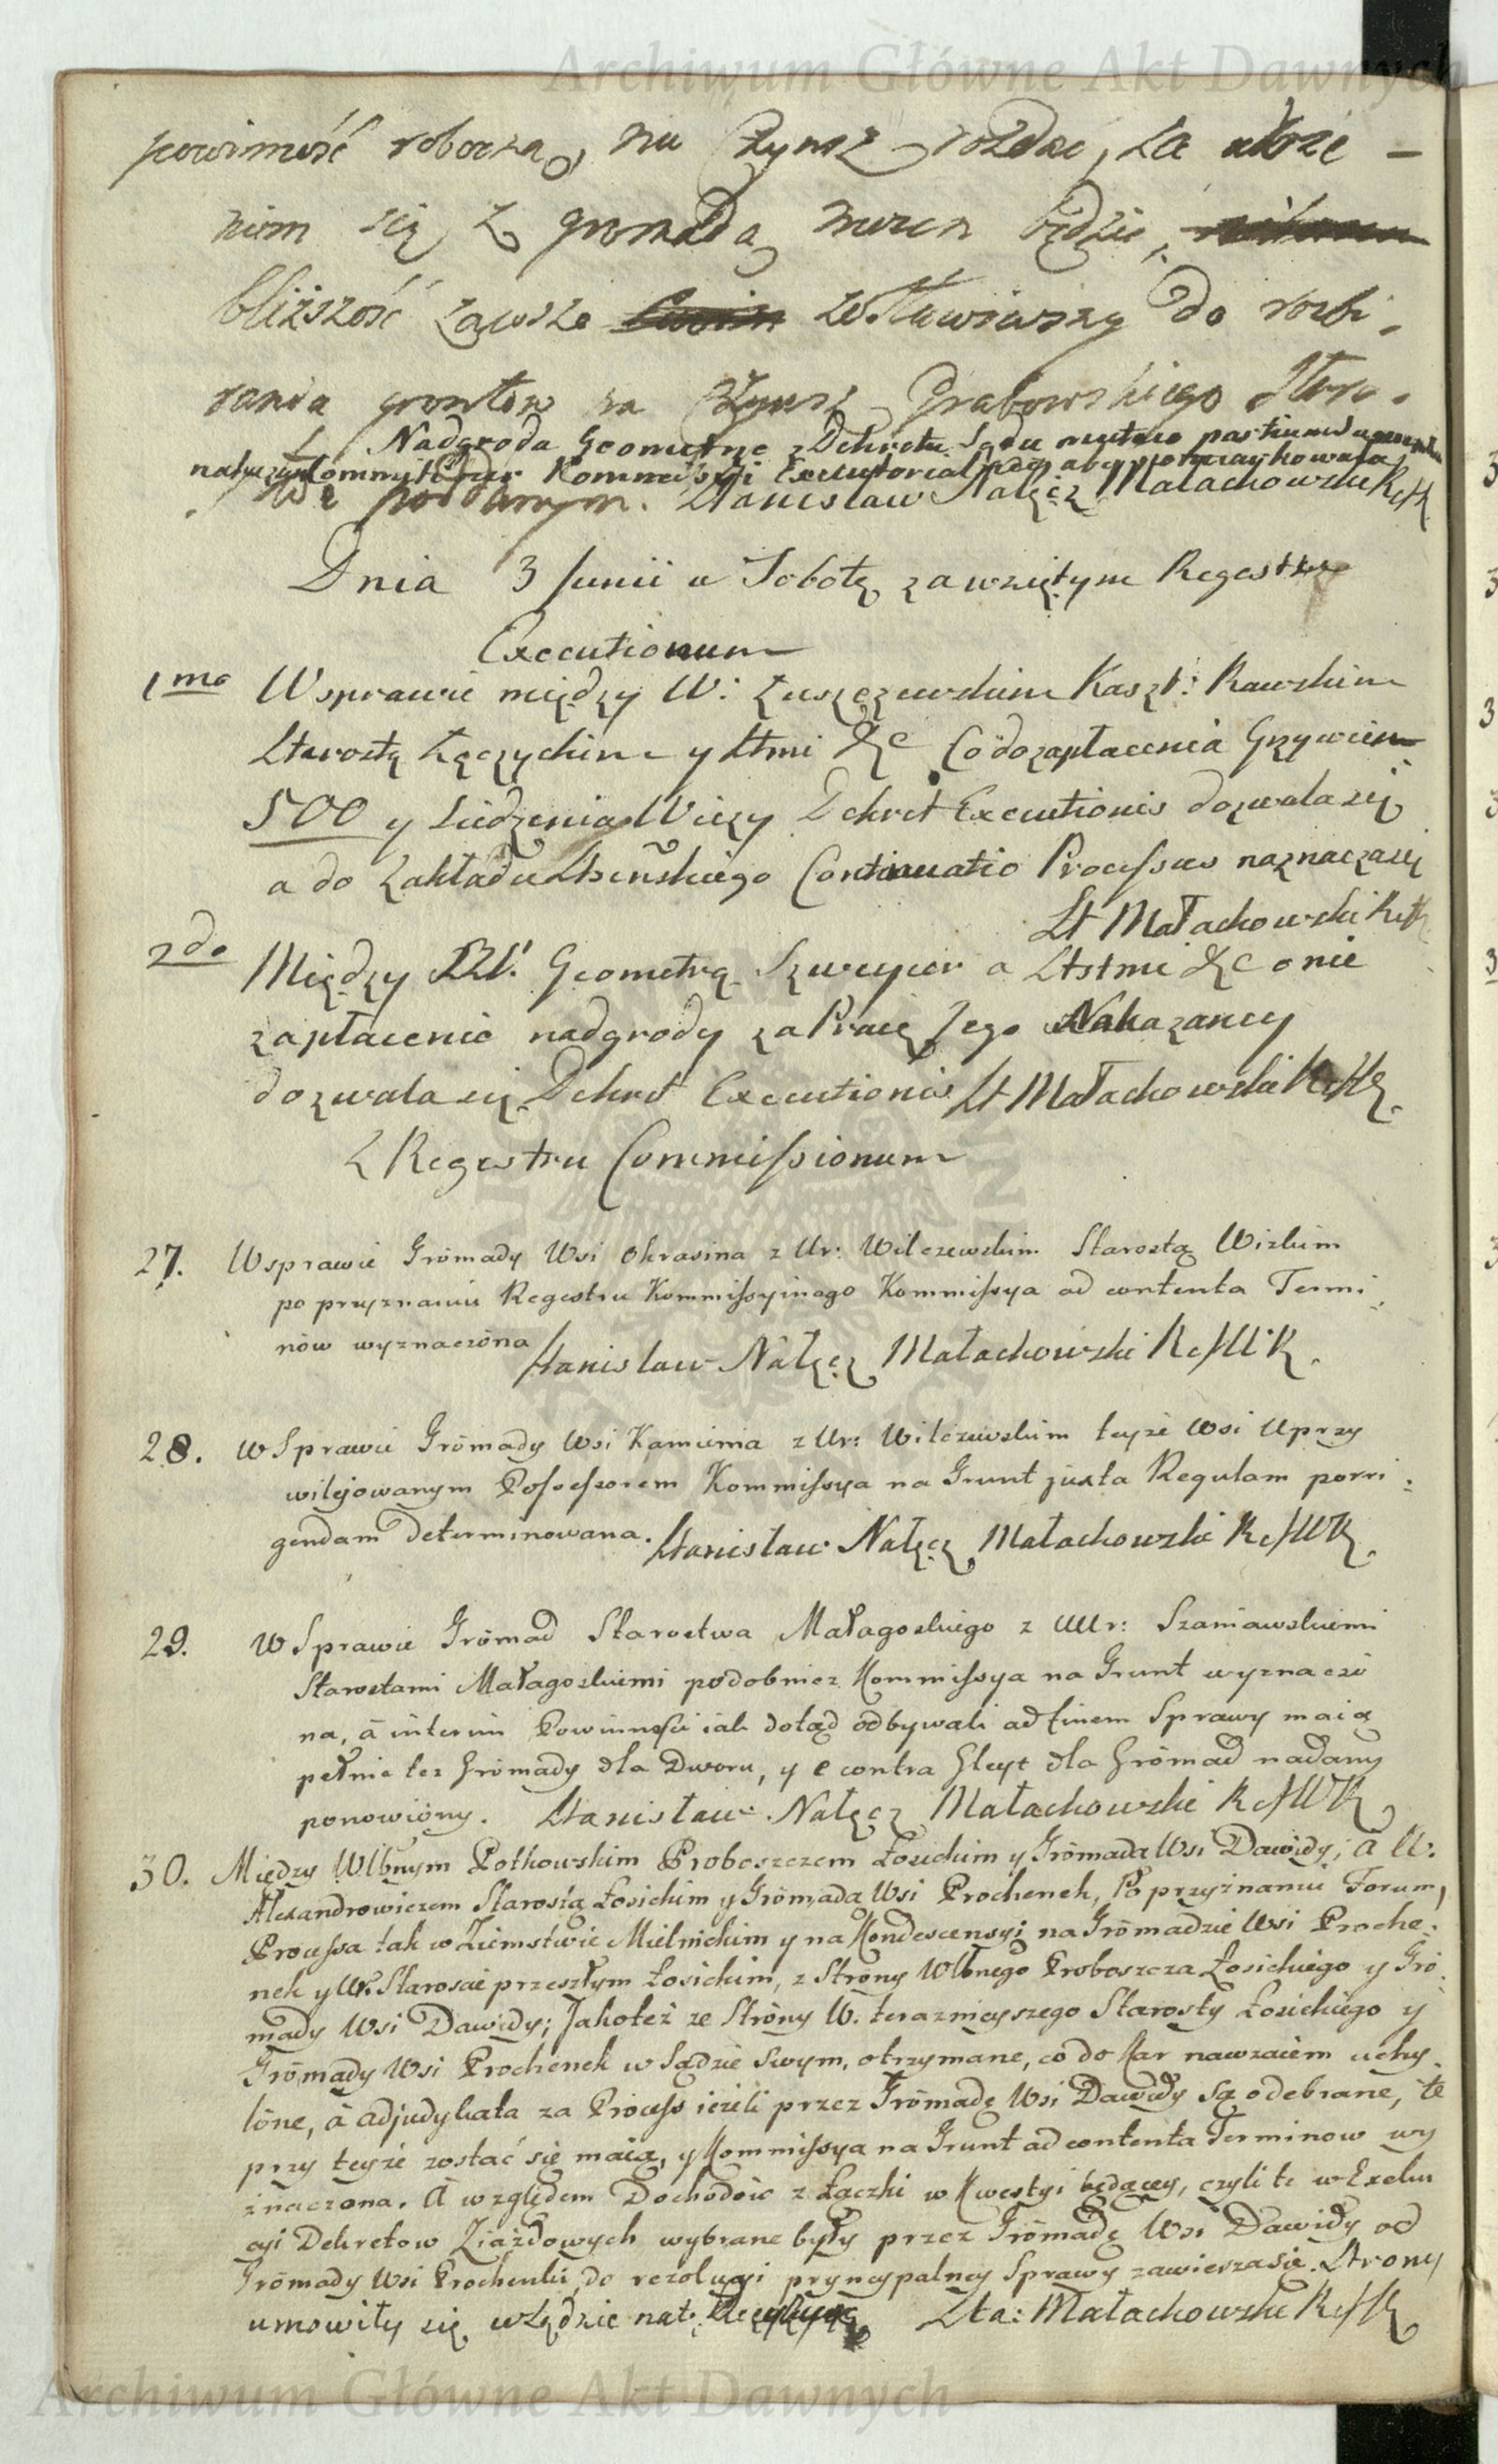 Archiwum Główne Akt Dawnych
powinność roboczą, na Czynsz rozdać, za ułoże –
niem się z gromadą mocen będzie,
bliższość zawsze zostawiwszy do rozbi.
rania gruntów na Czynsz Grabowskiego Staro.
Nadgroda Geometrze z Dekretu Sądu
Kommissyi aby
poddanym. Stanisław Nałęcz Małachowski RefK
Dnia 3 Junii w Sobotę za wziętym Regestrze
Executionum
1mo W sprawie między W: Łuszczewskim Kaszt: Rawskim
Starostą Łęczyckim y Stmi &c Co do zapłacenia Grzywien
500 y Siedzenia Wieży Dekret Executionis dozwala się
a do Zakładu Continuatio Processus naznacza się
St Małachowski RefK
2do Między Geometrą Szweycer a Ststmi &c o nie
zapłacenie nadgrody za Pracę Jego Nakazaney
dozwala się Dekret Executionis St Małachowski RefK
Z Regestru Commissionum
27. W sprawie Grómady Wsi Okrasina z Ur: Wilczewskim Starostą Wizkim
po przyznaniu Regestru Kommissyinego Kommissya ad contenta Termi
nów wyznaczóna Stanisław Nałęcz Małachowski RefWK.
28. W Sprawie Grómady Wsi Kamienia z Ur: Wilczewskim teyże Wsi Uprzy
wilejowanym Possessorem Kommissya na Grunt juxta Regulam porri :
gendam determinowana. Stanisław Nałęcz Małachowski RefWK
29. W Sprawie Grómad Starostwa Małagoskiego z UUr: Szaniawskiemi
Starostami Małagoskiemi podobnież Kommissya na Grunt wyznaczó
na, à interim Powinności iak dotąd odbywali ad finem Sprawy maią
pełnić też Grómady dla Dworu, y e contra Gleyt dla Grómad nadany
ponowióny. Stanisław Nałęcz Małachowski RefWK
30. Między Wlbnym Potkowskim Proboszczem Łosickim y Grómadą Wsi Dawidy; à W.
Alexandrowiczem Starostą Łosickim y Grómadą Wsi Prochenek, Po przyznaniu Forum,
Processa tak w Ziemstwie Mielnickim y na Kondescensyi na Grómadzie Wsi Proche.
nek y Ur. Staroscie przeszłym Łosickim, z Stróny Wlbnego Proboszcza Łosickiego y Gró.
mady Wsi Dawidy; Jakoteż ze Stróny W. teraznieyszego Starosty Łosickiego y
Grómady Wsi Prochenek w Sądzie swym, otrzymane, co do Kar nawzaiem uchy.
lóne, à adjudykata za Process ieżeli przez Grómadę Wsi Dawidy są odebrane, te
przy teyże zostać się maią, y Kommissya na Grunt ad contenta Terminow wy
znaczona. à względem Dochodów z Łączki w Kwestyi będącey, czyli te w Exeku
cyi Dekretow Ziazdowych wybrane były przez Grómadę Wsi Dawidy od
Grómady Wsi Prochenki, do rezolucyi pryncypalney Sprawy zawiesza się. Strony
umowiły się w Sądzie nat: Sta: Małachowski RefK
Archiwum Główne Akt Dawnych